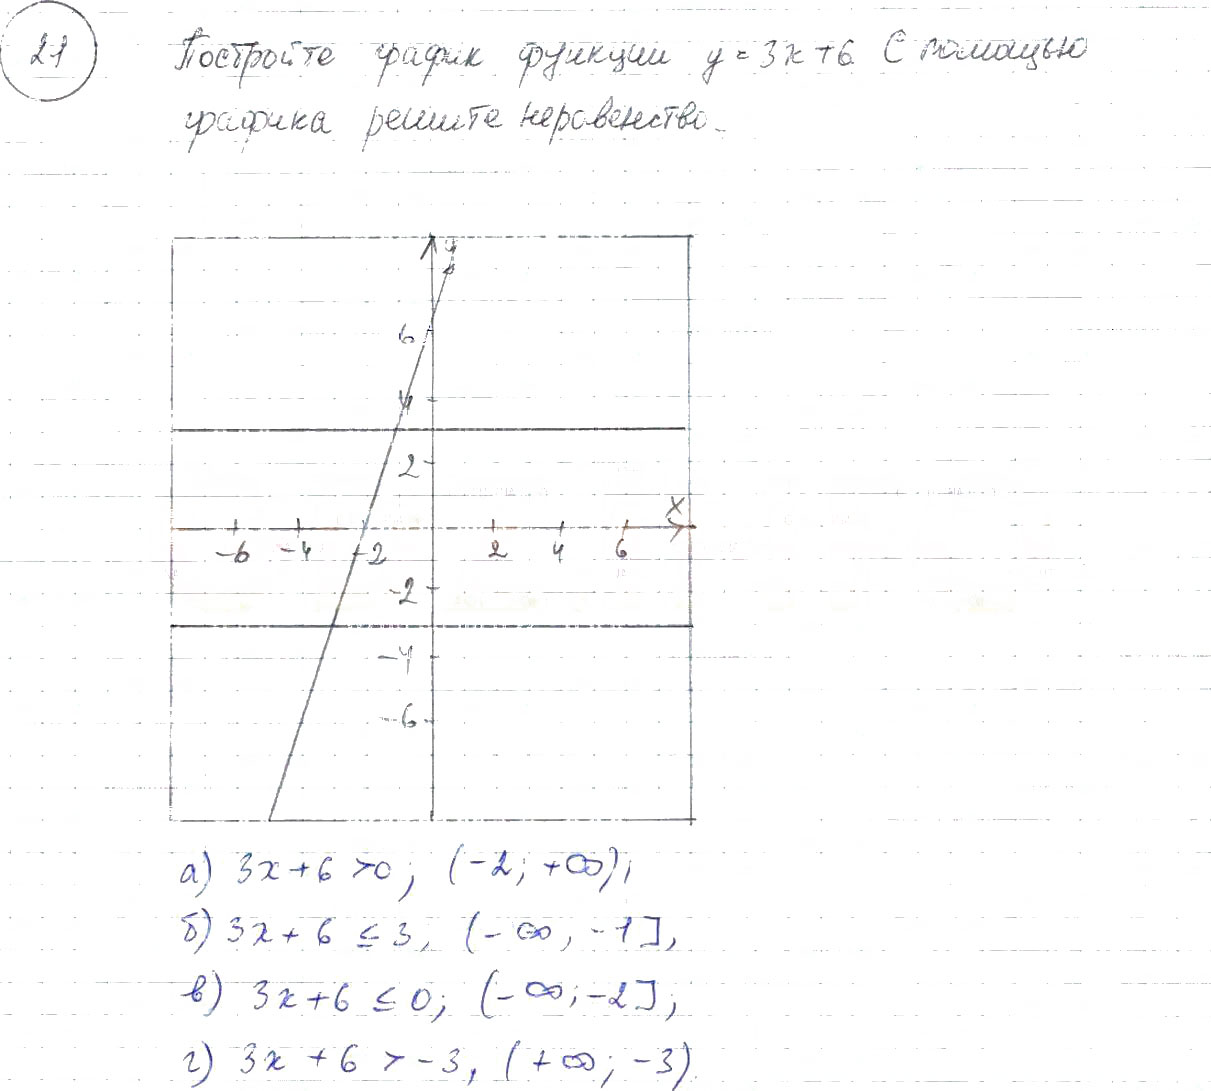 21
Постройте график функции y = 3x + 6 С помощью
графика решите неравенство.
y
6
4
2
x
-6 -4 -2 2 4 6
-2
-4
-6
а) 3x + 6 > 0; (-2; +∞);
б) 3x + 6 ≤ 3, (-∞, -1],
в) 3x + 6 ≤ 0; (-∞; -2];
г) 3x + 6 > -3, (+∞; -3)